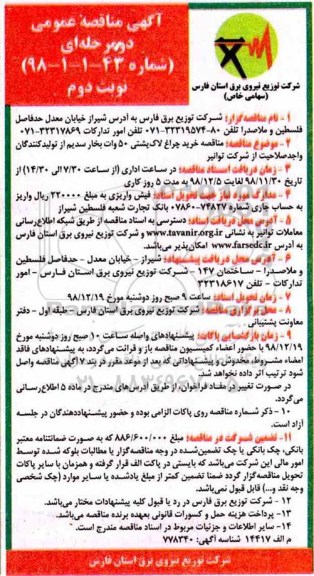 آگهی مناقصه عمومی
دومرحله‌ای
(شماره ۴۳-۱-۱-۹۸)
نوبت دوم
شرکت توزیع نیروی برق استان فارس
(سهامی خاص)
۱- نام مناقصه‌گزار: شرکت توزیع برق فارس به آدرس شیراز خیابان معدل حدفاصل
فلسطین و ملاصدرا تلفن ۸۰-۳۲۳۱۹۵۷۴-۰۷۱ تلفن امور تدارکات ۳۲۳۱۷۸۶۹-۰۷۱
۲- موضوع مناقصه: مناقصه خرید چراغ لاک‌پشتی ۵۰ وات بخار سدیم از تولیدکنندگان
واجدصلاحیت از شرکت توانیر
۳- زمان دریافت اسناد مناقصه: در ساعت اداری (از ساعت ۷/۳۰ الی ۱۴/۳۰) از
تاریخ ۹۸/۱۱/۳۰ لغایت ۹۸/۱۲/۵ به مدت ۵ روز کاری
۴- مدارک مورد نیاز جهت تحویل اسناد: فیش واریزی به مبلغ ۲۲۰۰۰۰ ریال واریز
به حساب جاری شماره ۰۷۸۶۰۰۷۴۸۲۷ بانک تجارت شعبه فلسطین شیراز
۵- آدرس محل دریافت اسناد: دسترسی به اسناد مناقصه از طریق شبکه اطلاع‌رسانی
معاملات توانیر به نشانی www.tavanir.org.ir و شرکت توزیع نیروی برق استان فارس
به آدرس www.farsedc.ir امکان‌پذیر می‌باشد.
۶- آدرس محل دریافت پیشنهاد: شیراز - خیابان معدل - حدفاصل فلسطین
و ملاصدرا - ساختمان ۱۴۷ - شرکت توزیع نیروی برق استان فارس - امور
تدارکات - تلفن ۳۲۳۱۸۶۱۷
۷- زمان تحویل اسناد: ساعت ۹ صبح روز دوشنبه مورخ ۹۸/۱۲/۱۹
۸- محل برگزاری مناقصه: شرکت توزیع نیروی برق استان فارس - طبقه اول - دفتر
معاونت پشتیبانی
۹- زمان بازگشایی پاکات: پیشنهادهای واصله ساعت ۱۰ صبح روز دوشنبه مورخ
۹۸/۱۲/۱۹ با حضور اعضاء کمیسیون مناقصه باز و قرائت می‌گردد، به پیشنهادهای فاقد
امضاء مشروط، مخدوش و پیشنهاداتی که بعد از موعد مقرر در بند ۷ آگهی مناقصه واصل
شود ترتیب اثر داده نخواهد شد.
در صورت تغییر در مفاد فراخوان، از طریق آدرس‌های مندرج در ماده ۵ اطلاع‌رسانی
می‌گردد.
۱۰- ذکر شماره مناقصه روی پاکات الزامی بوده و حضور پیشنهاددهندگان در جلسه
آزاد است.
۱۱- تضمین شرکت در مناقصه: مبلغ ۸۸۶/۶۰۰/۰۰۰ که به صورت ضمانتنامه معتبر
بانکی، چک بانکی یا چک تضمین‌شده در وجه مناقصه‌گزار یا مطالبات بلوکه شده توسط
امور مالی این شرکت می‌باشد که بایستی در پاکت الف قرار گرفته و همزمان با سایر پاکات
تحویل مناقصه‌گزار گردد ضمنا تضمین کمتر از مبلغ یادشده یا سایر موارد (چک شخصی
وجه نقد و...) قابل قبول نمی‌باشد.
۱۲- شرکت توزیع برق فارس در رد یا قبول کلیه پیشنهادات مختار می‌باشد.
۱۳- پرداخت هزینه حمل و کسورات قانونی بعهده برنده مناقصه می‌باشد.
۱۴- سایر اطلاعات و جزئیات مربوط در اسناد مناقصه مندرج است.
م الف ۱۴۴۱۷ شناسه آگهی: ۷۷۸۳۴۰
شرکت توزیع نیروی برق استان فارس